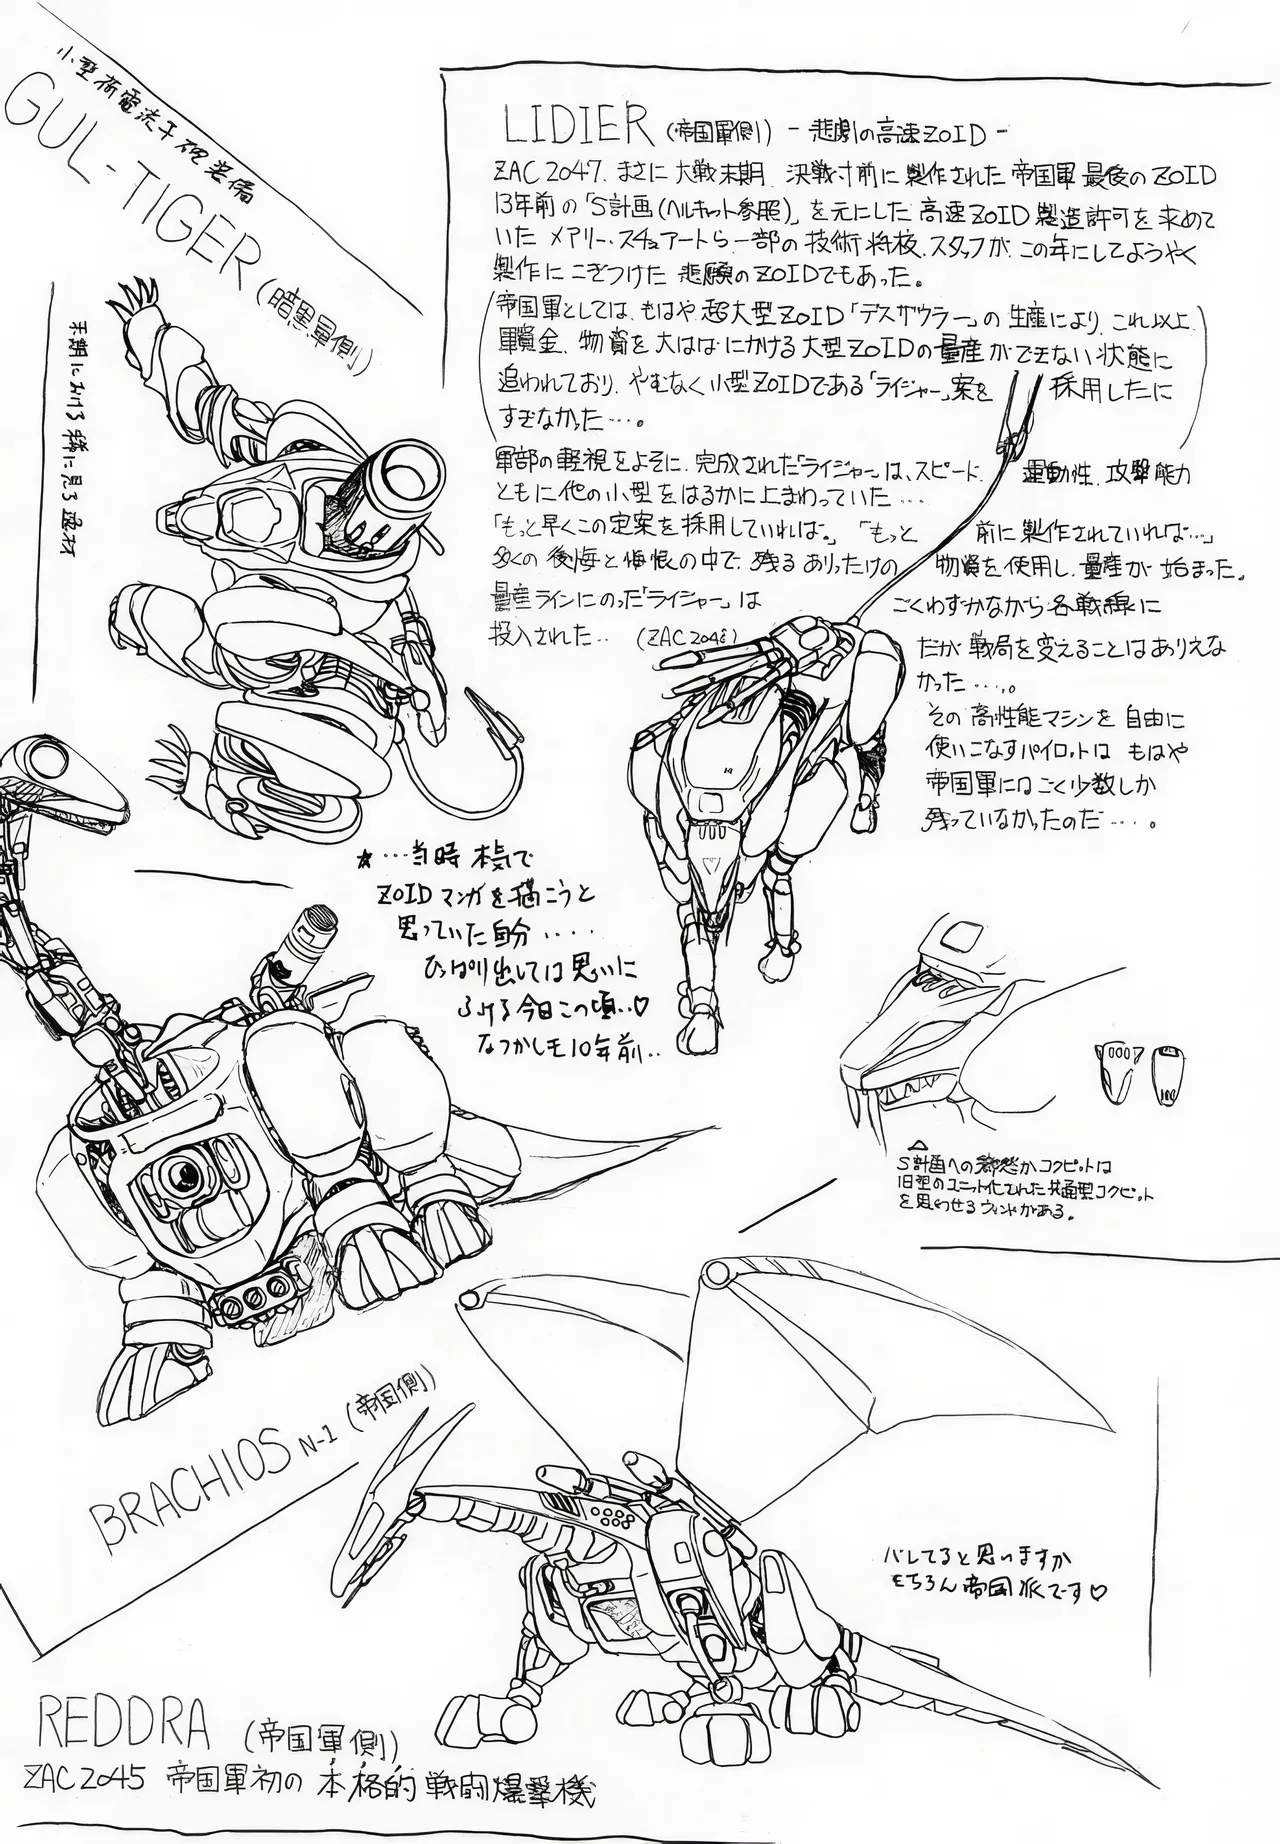 小型荷電流子砲装備
GUL-TIGER (暗黒軍側)
末期における稀に見る逸材
LIDIER (帝国軍側) - 悲劇の高速ZOID -
ZAC 2047. まさに大戦末期、決戦寸前に製作された帝国軍最後のZOID
13年前の「S計画(ヘルキャット参照)」を元にした高速ZOID製造許可を求めて
いたメアリー・スチュアートら一部の技術将校、スタッフが、この年にしてようやく
製作にこぎつけた悲願のZOIDでもあった。
(帝国軍としては、もはや超大型ZOID「デスザウラー」の生産により、これ以上
軍資金、物資を大はばにかける大型ZOIDの量産ができない状態に
追われており、やむなく小型ZOIDである「ライジャー」案を 採用したに
すぎなかった…。)
軍部の軽視をよそに、完成された「ライジャー」は、スピード、運動性、攻撃能力
ともに他の小型をはるかに上まわっていた…
「もっと早くこの定案を採用していれば。」「もっと 前に製作されていれば…」
多くの後悔と悔恨の中で、残るありったけの 物資を使用し、量産が始まった。
量産ラインにのった「ライジャー」は ごくわずかながら各戦線に
投入された‥ (ZAC 2048)
だが戦局を変えることはありえな
かった…。
その高性能マシンを自由に
使いこなすパイロットは もはや
帝国軍にはごく少数しか
残っていなかったのだ…。
★…当時 本気で
ZOIDマンガを描こうと
思っていた自分‥‥
ひっぱり出しては思いに
ふける今日この頃‥♡
なつかしモ10年前‥
△
S計画への コクピットは
旧型のユニット化された共通型コクピット
を思わせるウィンドがある。
BRACHIOS N-1 (帝国側)
バレてると思いますが
もちろん帝国派です♡
REDDRA (帝国軍側)
ZAC 2045 帝国軍初の 本格的戦闘爆撃機